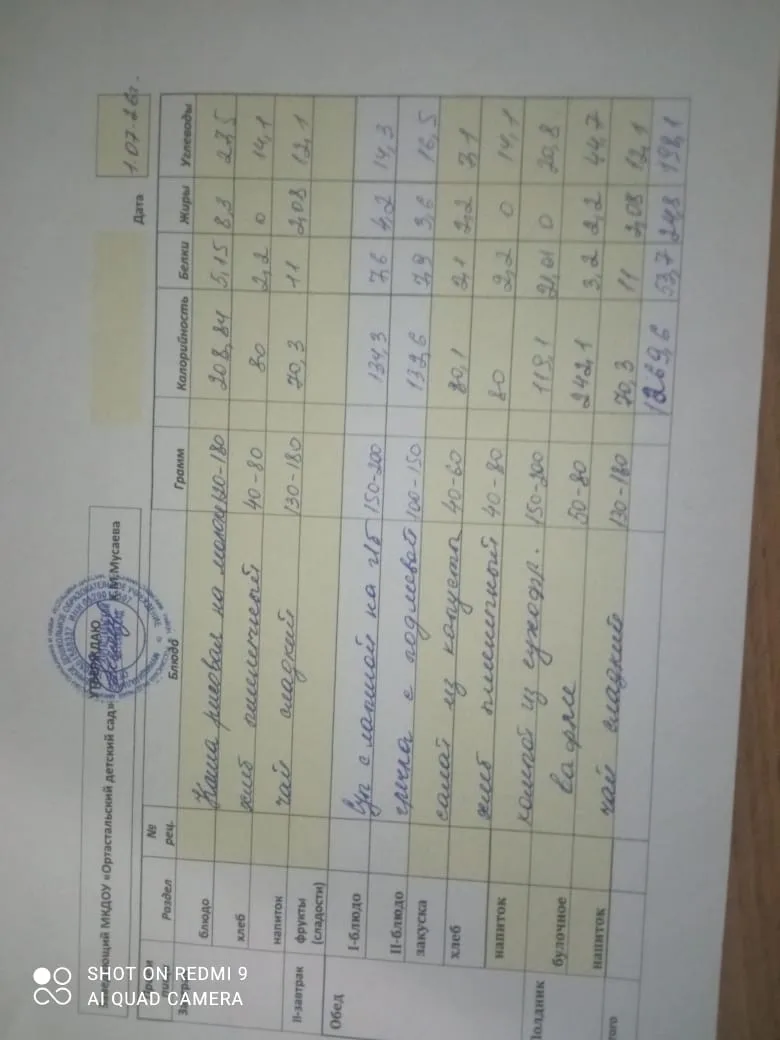 УТВЕРЖДАЮ
Заведующий МКДОУ «Ортастальский детский сад» Б.М.Мусаева
Дата 1.07-26г.
Раздел № рец. Блюдо Грамм Калорийность Белки Жиры Углеводы
блюдо Каша рисовая на молоке 120-180 208,84 5,15 8,3 27,5
хлеб хлеб пшеничный 40-80 80 2,2 0 14,1
напиток чай сладкий 130-180 70,3 11 2,08 12,1
II-завтрак фрукты (сладости)
Обед I-блюдо Суп с лапшой на м/б 150-200 134,3 7,6 4,2 14,3
II-блюдо гречка с подливой 100-150 132,6 7,9 3,6 16,5
закуска салат из капусты 40-60 80,1 2,1 2,2 7,1
хлеб хлеб пшеничный 40-80 80 2,2 0 14,1
напиток компот из сухофр. 150-200 119,1 21,01 0 20,8
Полдник булочное вафли 50-80 242,1 3,2 2,2 44,7
напиток чай сладкий 130-180 70,3 11 2,08 12,1
1269,6 53,7 24,8 198,1
SHOT ON REDMI 9
AI QUAD CAMERA